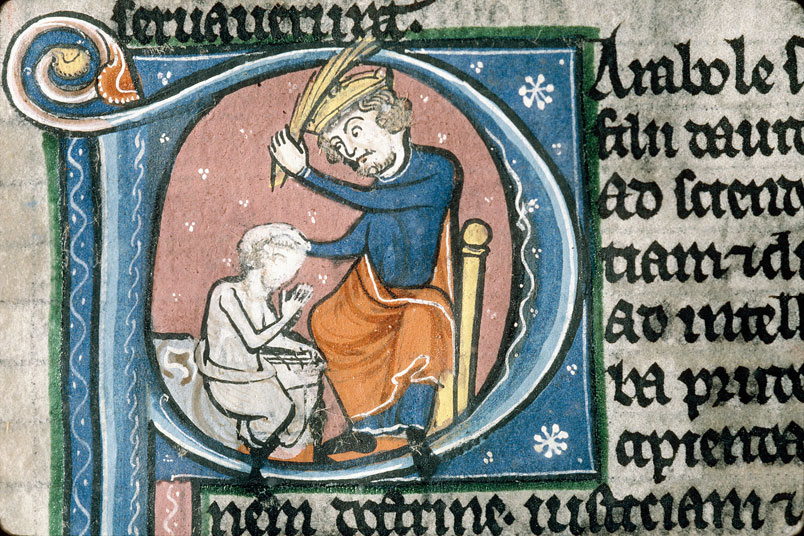 seruauerunt.
Arabole s
filii dauid
ad sciend
tiam ⁊ di
ad intell
ba prude
cipienda
nem doctrine. iusticiam ⁊